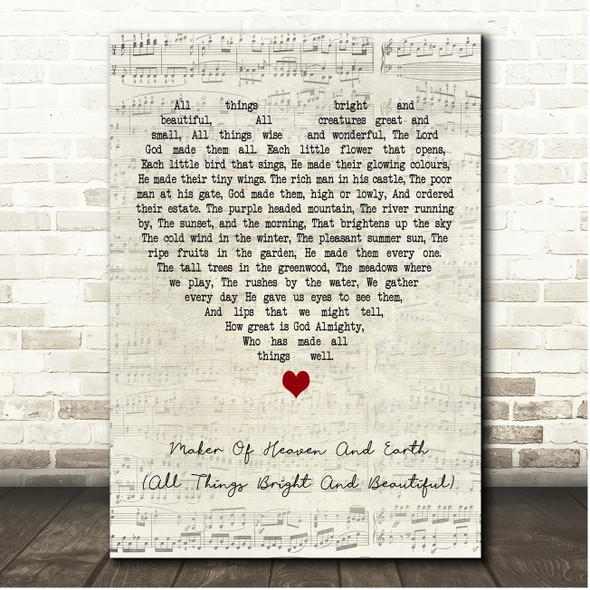 All things bright and
beautiful, All creatures great and
small, All things wise and wonderful, The Lord
God made them all. Each little flower that opens,
Each little bird that sings, He made their glowing colours,
He made their tiny wings. The rich man in his castle, The poor
man at his gate, God made them, high or lowly, And ordered
their estate. The purple headed mountain, The river running
by, The sunset, and the morning, That brightens up the sky
The cold wind in the winter, The pleasant summer sun, The
ripe fruits in the garden, He made them every one.
The tall trees in the greenwood, The meadows where
we play, The rushes by the water, We gather
every day He gave us eyes to see them,
And lips that we might tell,
How great is God Almighty,
Who has made all
things well.
Maker Of Heaven And Earth
(All Things Bright And Beautiful)